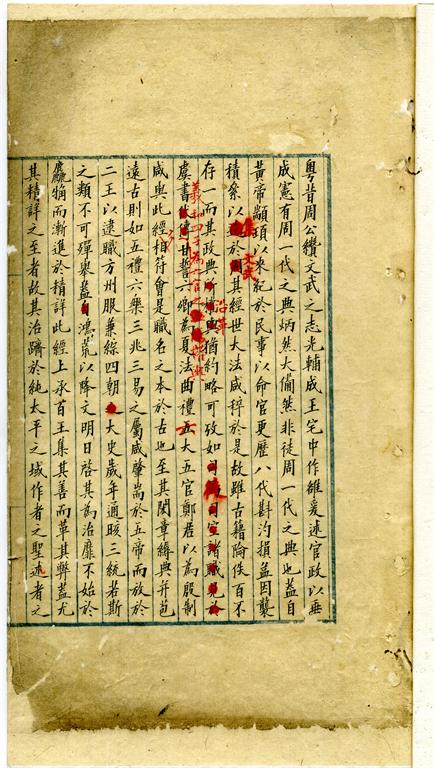 粵昔周公纘文武之志光輔成王宅中作雒爰述官政以垂
成憲有周一代之典炳然大僃然非徒周一代之典也蓋自
黃帝顓頊以來紀於民事以命官更歷八代斟汋損益因襲
積絫以集於文武其經世大法咸稡於是故雖古籍淪佚百不
存一而其政典沿革猶約略可攷如司空諸職見於
虞書羲和四子為官之權輿甘誓六卿為夏法曲禮六大五官鄭君以為殷制
咸與此經相符會是職名之本於古也至其閎章縟典并苞
遠古則如五禮六樂三兆三易之屬咸肇耑於五帝而放於
二王以逮職方州服兼綜四朝大史歲年通晐三統若斯
之類不可殫舉蓋自鴻荒以降文明日啓其為治靡不始於
麤觕而漸進於精詳此經上承百王集其善而革其弊蓋尤
其精詳之至者故其治躋於純太平之域作者之聖述者之